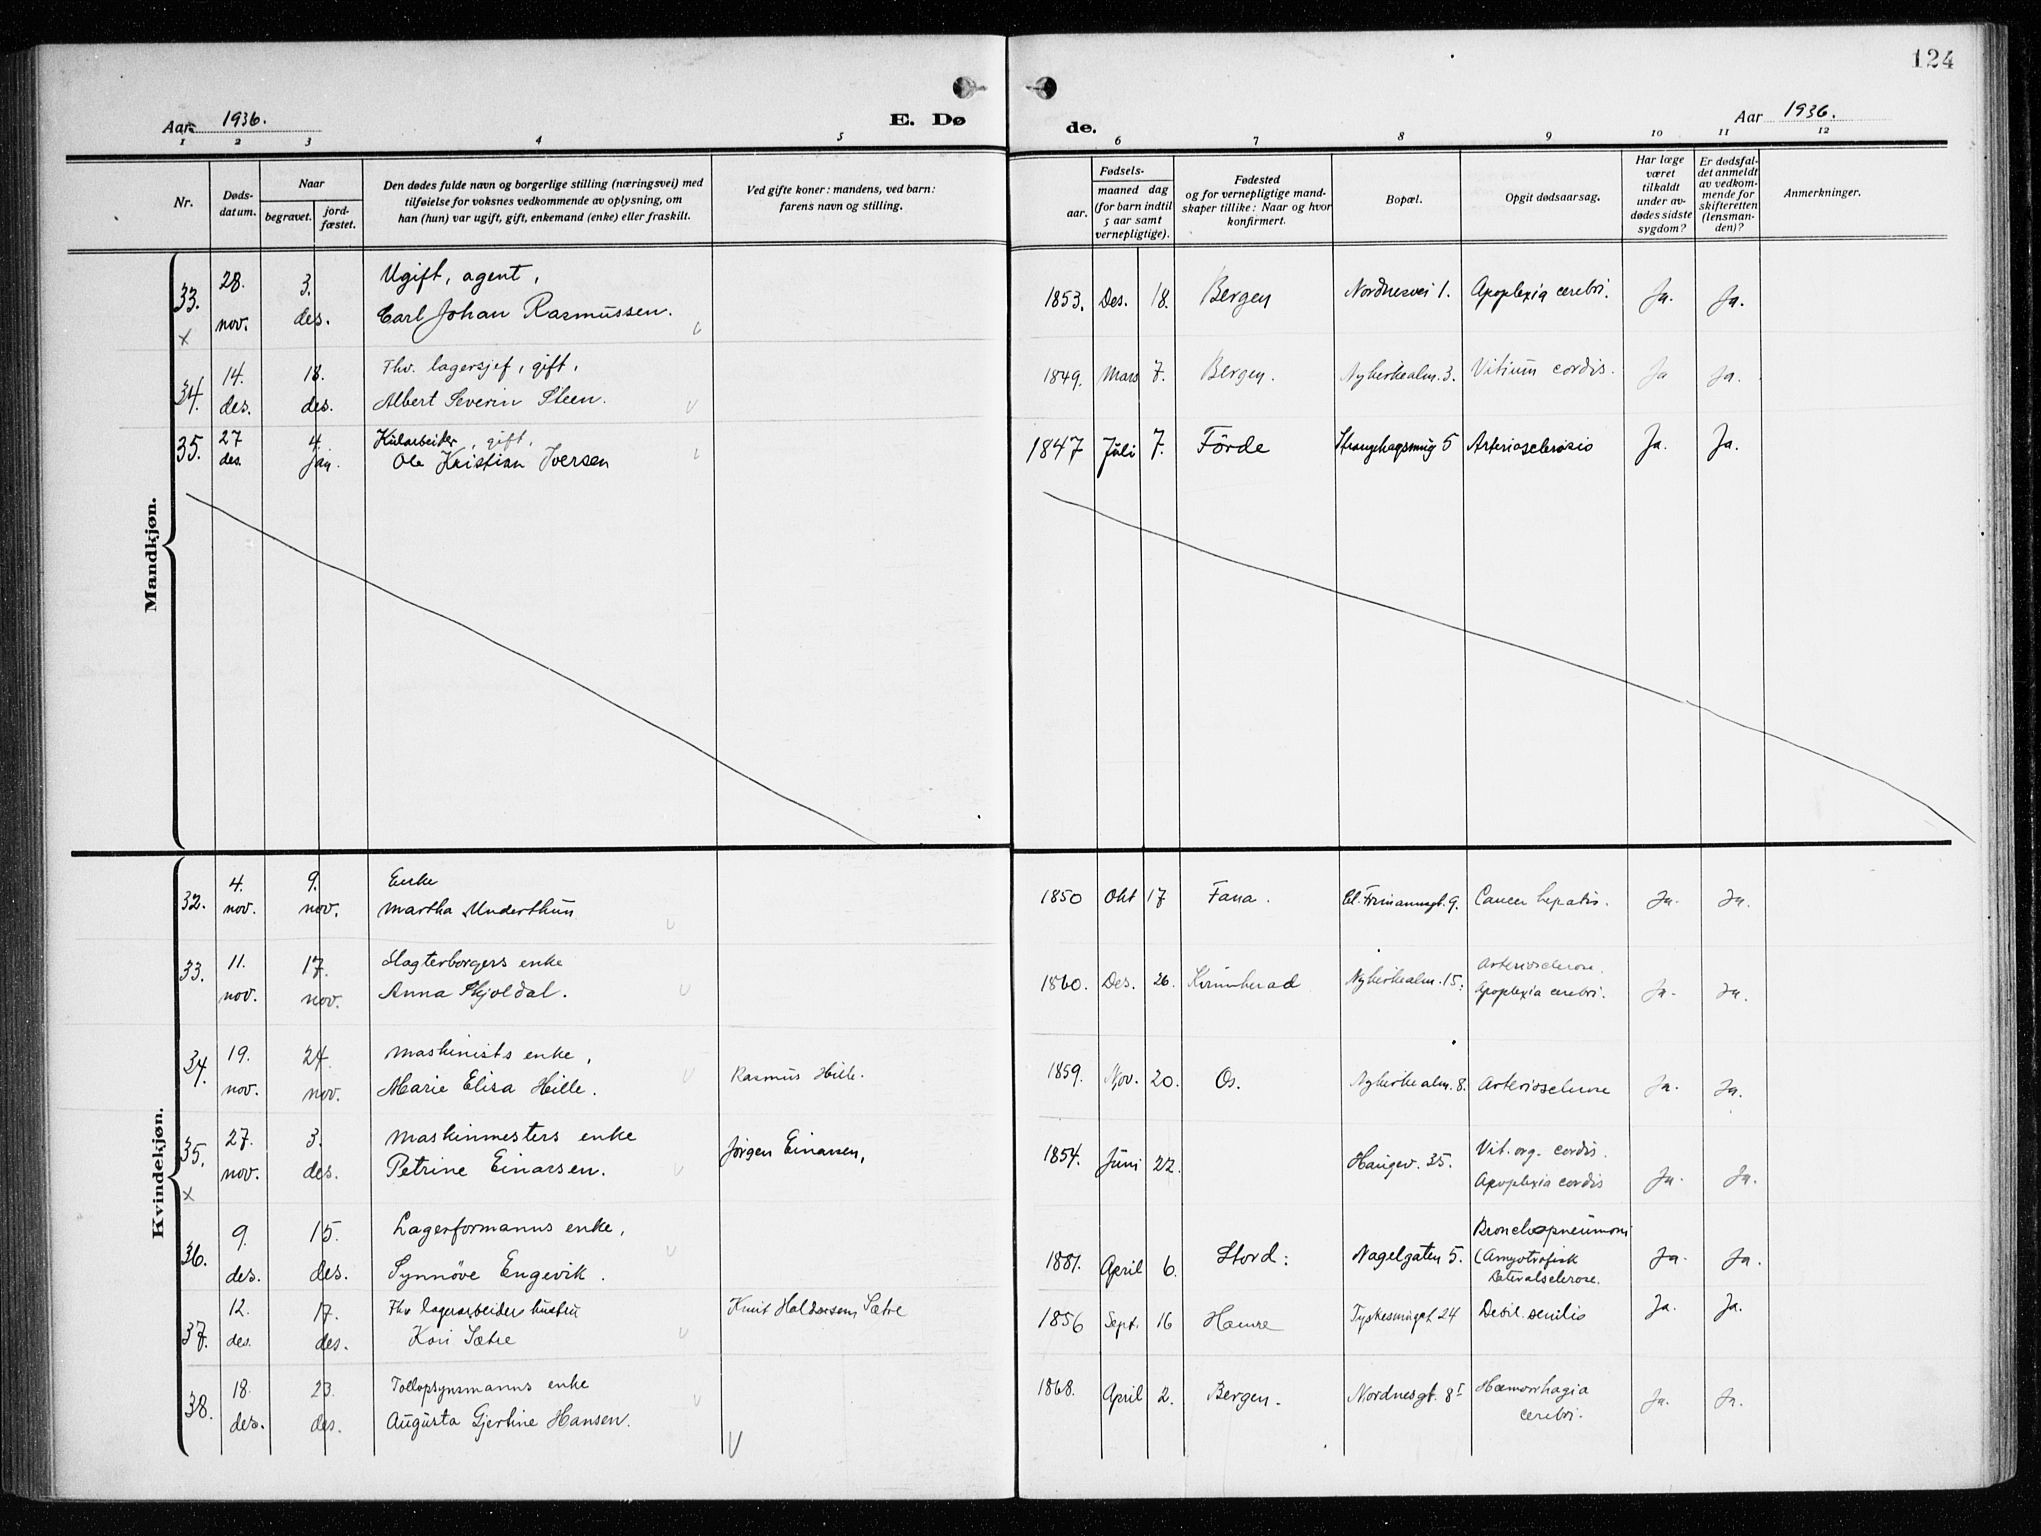 124
Aar 1936.
E. Dø
de.
Aar 1936.
1 2 3 4 5 6 7 8 9 10 11 12
Nr.
Døds-
datum.
Naar
begravet.
jord-
fæstet.
Den dødes fulde navn og borgerlige stilling (næringsvei) med
tilføielse for voksnes vedkommende av oplysning, om
han (hun) var ugift, gift, enkemand (enke) eller fraskilt.
Ved gifte koner: mandens, ved barn:
farens navn og stilling.
Fødsels-
aar.
maaned dag
(for barn indtil
5 aar samt
vernepligtige).
Fødested
og for vernepligtige mand-
skaper tillike: Naar og hvor
konfirmert.
Bopæl.
Opgit dødsaarsag.
Har læge
været
tilkaldt
under av-
dødes sidste
sygdom?
Er dødsfal-
det anmeldt
av vedkom-
mende for
skifteretten
(lensman-
den)?
Anmerkninger.
Mandkjøn.
33. 28. 3. Ugift, agent,
nov. des. Carl Johan Rasmussen.
x
1853. Des. 18. Bergen Nordnesvei 1. Apoplexia cerebri. Ja. Ja.
34. 14. 18. Fhv. lagersjef, gift,
des. des. Albert Severin Steen.
1849. Mars 7. Bergen. Nykirkealm. 3. Vitium cordis. Ja Ja.
35. 27 4. Kularbeider, gift,
des. jan. Ole Kristian Iversen
1847 Juli 7. Förde Strangehagsmug 5 Arteriosclerosis Ja. Ja.
Kvindekjøn.
32. 4. 9. Enke
nov. nov. Martha Underthun
1850 Okt 17 Fana. Cl. Frimannsgt. 9. Cancer hepatis. Ja. Ja.
33. 11. 17. Slagterborgers enke
nov. nov. Anna Skjoldal.
1860. Des. 26. Kvinnherad Nykirkealm. 15. Arteriosclerose.
Apoplexia cerebri. Ja. Ja.
34. 19. 24. Maskinists enke,
nov. nov. Marie Elisa Hille. Rasmus Hille.
1859. Nov. 20. Os. Nykirkealm. 8. Arteriosclerose Ja. Ja.
35. 27. 3. Maskinmesters enke
nov. des. Petrine Einarsen. Jørgen Einarsen,
x
1854. Juni 22. Haugev. 35. Vit. org. cordis.
Apoplexia cordis Ja. Ja.
36. 9. 15. Lagerformanns enke,
des. des. Synnøve Engevik.
1881. April 6. Stord: Nagelgaten 5. Bronchopneumoni
(Amyotrofisk
lateralsclerose. Ja. Ja.
37. 12. 17. Fhv lagerarbeiders hustru
des. des. Kari Sætre Knut Haldorsen Sætre
1856 Sept. 16 Hamre Tyskesmuget 24 Debil. senilis Ja. Ja.
38. 18. 23. Tollopsynsmanns enke
des. des. Augusta Gjertine Hansen.
1868. April 2. Bergen. Nordnesgt. 8 I Hæmorrhagia
cerebri. Ja. Ja.